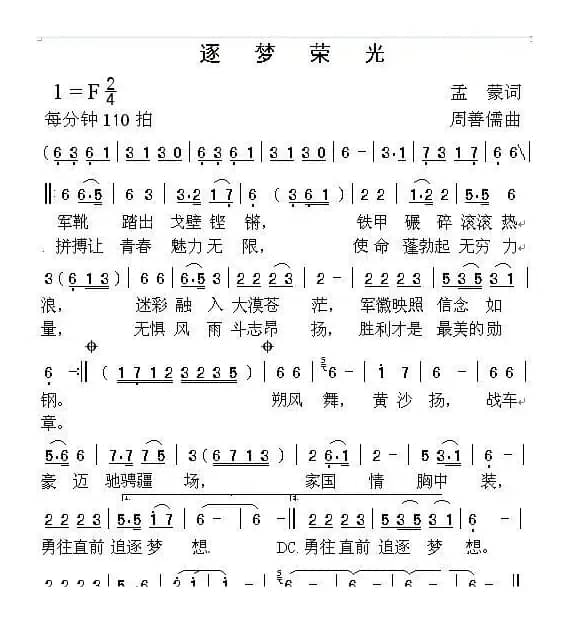 逐 梦 荣 光
1=F 2/4
孟 蒙词
每分钟110拍
周善儒曲
(6 3 6 1 | 3 1 3 0 | 6 3 6 1 | 3 1 3 0 | 6 - | 3·1 | 7 3 1 7 | 6 6 \
‖: 6 6·5 | 6 3 | 3·2 1 7 | 6 (3 6 1) | 2 2 | 1·2 2 | 5·5 6
军靴 踏出 戈壁 铿 锵, 铁甲 碾 碎 滚滚 热
拼搏让 青春 魅力 无 限, 使命 蓬勃起 无穷 力
3 (6 1 3) | 6 6 | 6·5 3 | 2 2 2 3 | 2 - | 2 2 2 3 | 5 3 5 3 1
浪, 迷彩 融 入 大漠苍 茫, 军徽映照 信念 如
量, 无惧 风 雨 斗志昂 扬, 胜利才是 最美的勋
6 -:‖ (1 7 1 2 | 3 2 3 5) | 6 6 | 6 - | 1 7 | 6 - | 6 6
钢。 朔风 舞, 黄 沙 扬, 战车
章。
5·6 6 | 7·7 7 5 | 3 (6 7 1 3) | 2 2 | 6·1 | 2 - | 5·3 | 5 -
豪 迈 驰骋疆 场, 家国 情 胸中 装,
1. 2.
2 2 2 3 | 5·5 1 7 | 6 - | 6 - ‖ 2 2 2 3 | 5 3 5 3 1 | 6 -
勇往直前 追逐 梦 想. DC. 勇往直前 追逐 梦 想。